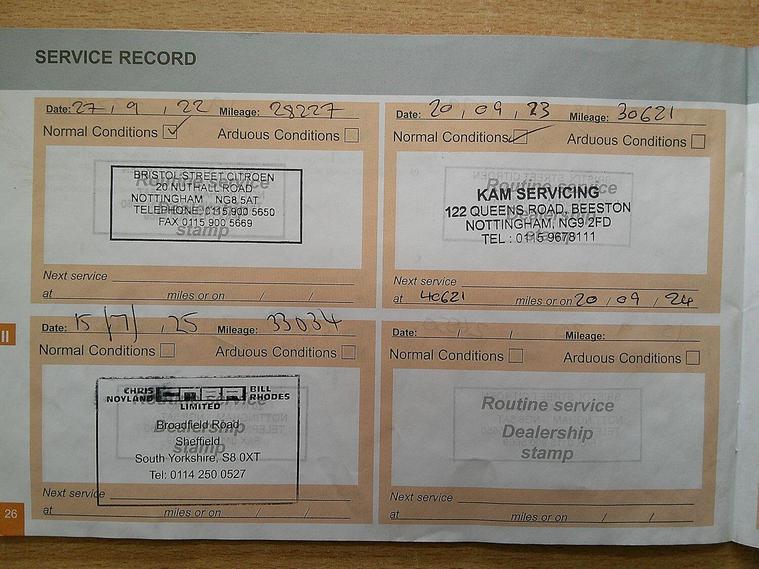 SERVICE RECORD
Date: 27 / 9 / 22 Mileage: 28227
Normal Conditions ✓ Arduous Conditions
BRISTOL STREET CITROEN
20 NUTHALL ROAD
NOTTINGHAM NG8 5AT
TELEPHONE 0115 900 5650
FAX 0115 900 5669
stamp
Next service
at miles or on / /
Date: 20 / 09 / 23 Mileage: 30621
Normal Conditions ✓ Arduous Conditions
Routine service
KAM SERVICING
122 QUEENS ROAD, BEESTON
NOTTINGHAM, NG9 2FD
TEL : 0115 9678111
Next service
at 40621 miles or on 20 / 09 / 24
II
Date: 15 / 7 / 25 Mileage: 33034
Normal Conditions Arduous Conditions
CHRIS NOYLAND BILL RHODES
LIMITED
Routine service
Broadfield Road
Dealership
Sheffield
stamp
South Yorkshire, S8 0XT
Tel: 0114 250 0527
Next service
at miles or on / /
Date: / / Mileage:
Normal Conditions Arduous Conditions
Routine service
Dealership
stamp
Next service
at miles or on / /
26